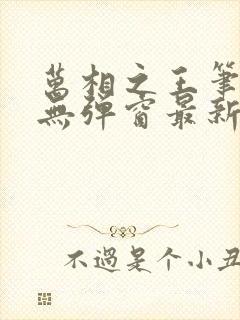 萬相之王筆
無彈窗最新
不過是个小丑